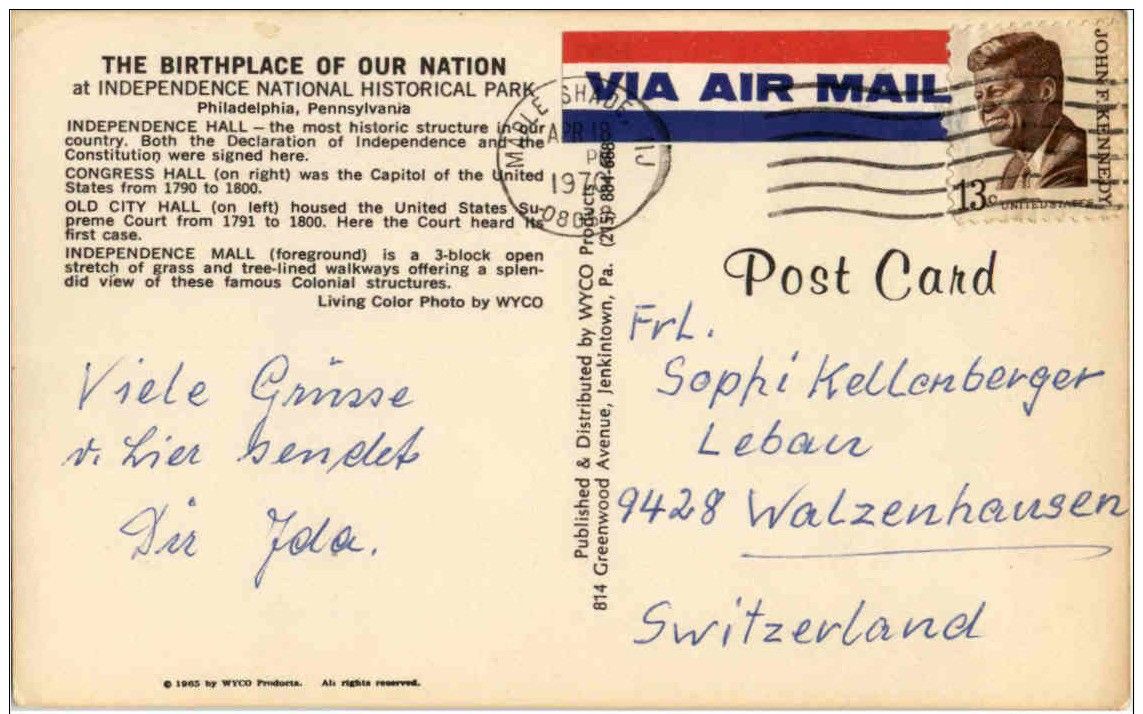 THE BIRTHPLACE OF OUR NATION
at INDEPENDENCE NATIONAL HISTORICAL PARK
Philadelphia, Pennsylvania
INDEPENDENCE HALL – the most historic structure in our
country. Both the Declaration of Independence and the
Constitution were signed here.
CONGRESS HALL (on right) was the Capitol of the United
States from 1790 to 1800.
OLD CITY HALL (on left) housed the United States Su-
preme Court from 1791 to 1800. Here the Court heard its
first case.
INDEPENDENCE MALL (foreground) is a 3-block open
stretch of grass and tree-lined walkways offering a splen-
did view of these famous Colonial structures.
Living Color Photo by WYCO
Viele Grüsse
v. hier sendet
Dir Ida.
© 1965 by WYCO Products. All rights reserved.
Published & Distributed by WYCO Products
814 Greenwood Avenue, Jenkintown, Pa. (215)
VIA AIR MAIL
MAPLE SHADE, NJ
APR 18
1970
JOHN F. KENNEDY
13c
UNITED STATES
Post Card
Frl.
Sophi Kellenberger
Lebau
9428 Walzenhausen
Switzerland